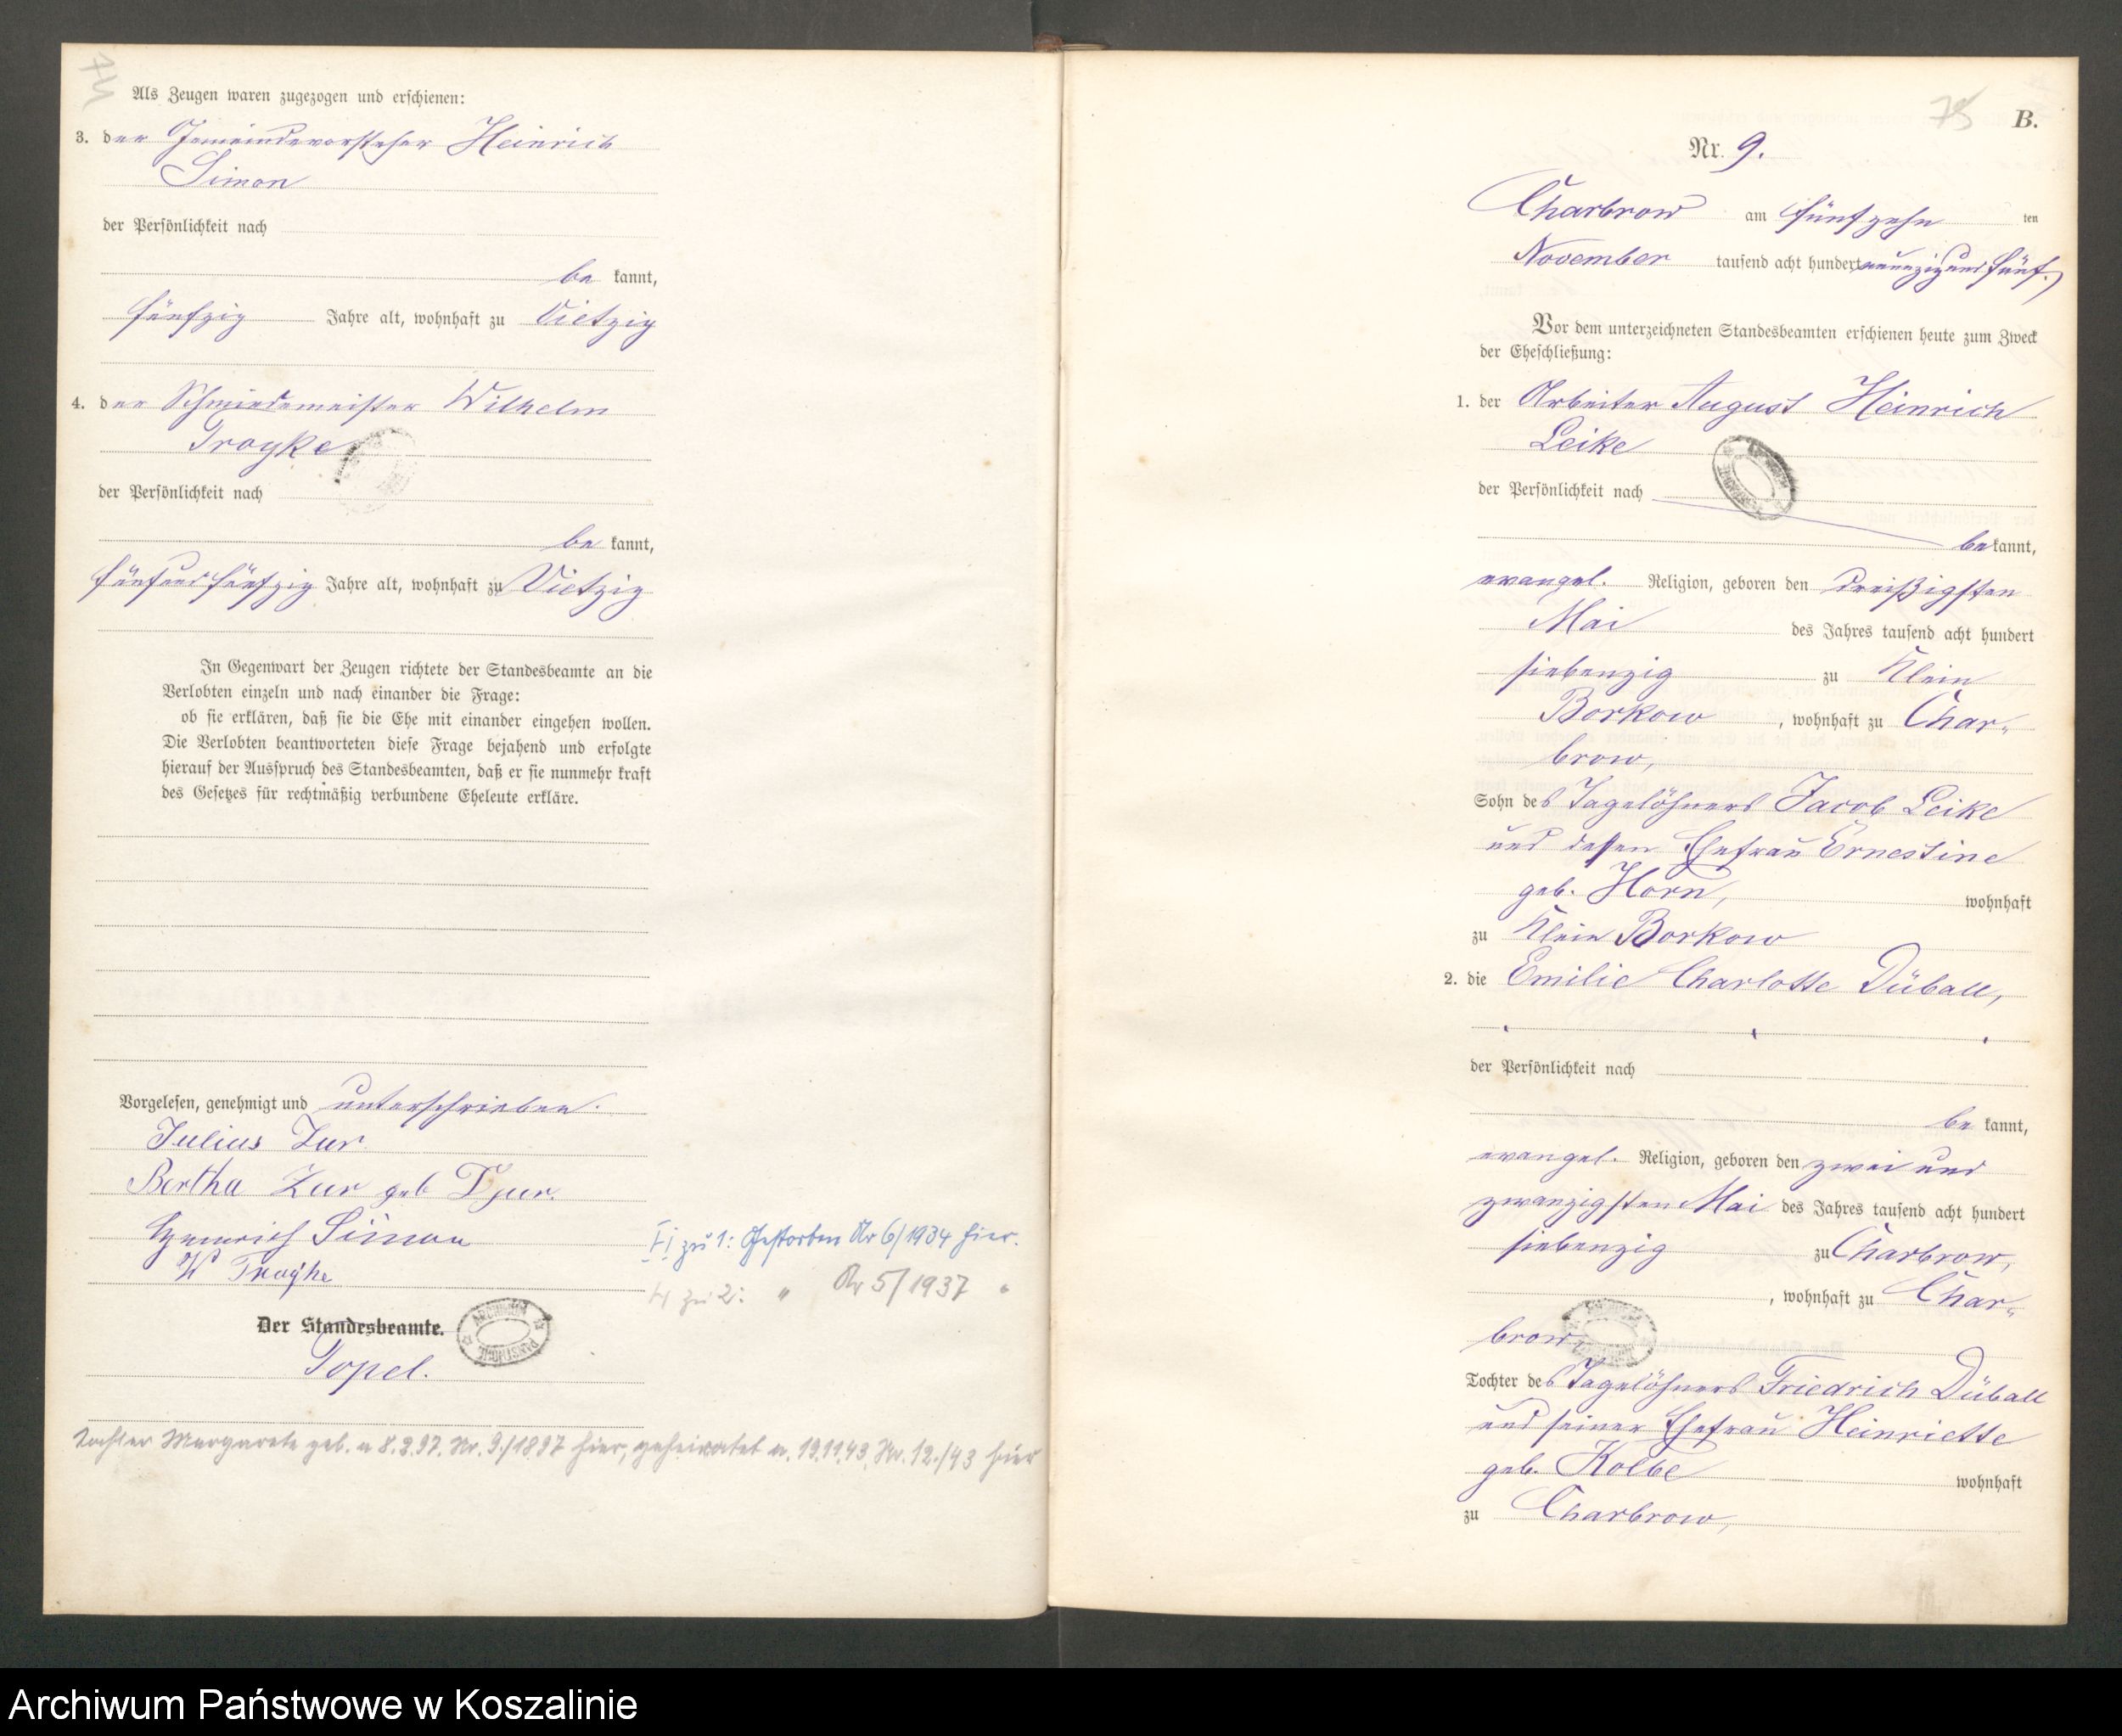 Als Zeugen waren zugezogen und erschienen:
3. der Gemeindevorsteher Heinrich
Simon
der Persönlichkeit nach
be kannt,
fünfzig Jahre alt, wohnhaft zu Vietzig
4. der Schmiedemeister Wilhelm
Troyke
der Persönlichkeit nach
be kannt,
fünfundfünfzig Jahre alt, wohnhaft zu Vietzig
In Gegenwart der Zeugen richtete der Standesbeamte an die
Verlobten einzeln und nach einander die Frage:
ob sie erklären, daß sie die Ehe mit einander eingehen wollen.
Die Verlobten beantworteten diese Frage bejahend und erfolgte
hierauf der Ausspruch des Standesbeamten, daß er sie nunmehr kraft
des Gesetzes für rechtmäßig verbundene Eheleute erkläre.
Vorgelesen, genehmigt und unterschrieben.
Julius Zur
Bertha Zur geb
Heinrich Simon
W Troyke
zu 1: Gestorben Nr 6/1934 hier.
zu 2: " Nr 5/1937 "
Der Standesbeamte.
Topel.
Tochter Margarete geb. a 8.3.97. Nr. 9./1897 hier, geheiratet a. 19.11.43. Nr. 12./43 hier
75
B.
Nr. 9.
Charbrow am fünfzehn ten
November tausend acht hundert neunzig und fünf.
Vor dem unterzeichneten Standesbeamten erschienen heute zum Zweck
der Eheschließung:
1. der Arbeiter August Heinrich
Leike
der Persönlichkeit nach
be kannt,
evangel. Religion, geboren den dreißigsten
Mai des Jahres tausend acht hundert
siebenzig zu Klein
Borkow, wohnhaft zu Char-
brow,
Sohn des Tagelöhners Jacob Leike
und dessen Ehefrau Ernestine
geb. Horn, wohnhaft
zu Klein Borkow
2. die Emilie Charlotte Düball,
der Persönlichkeit nach
be kannt,
evangel. Religion, geboren den zwei und
zwanzigsten Mai des Jahres tausend acht hundert
siebenzig zu Charbrow,
, wohnhaft zu Char-
brow
Tochter des Tagelöhners Friedrich Düball
und seiner Ehefrau Heinriette
geb. Kolbe wohnhaft
zu Charbrow,
Archiwum Państwowe w Koszalinie